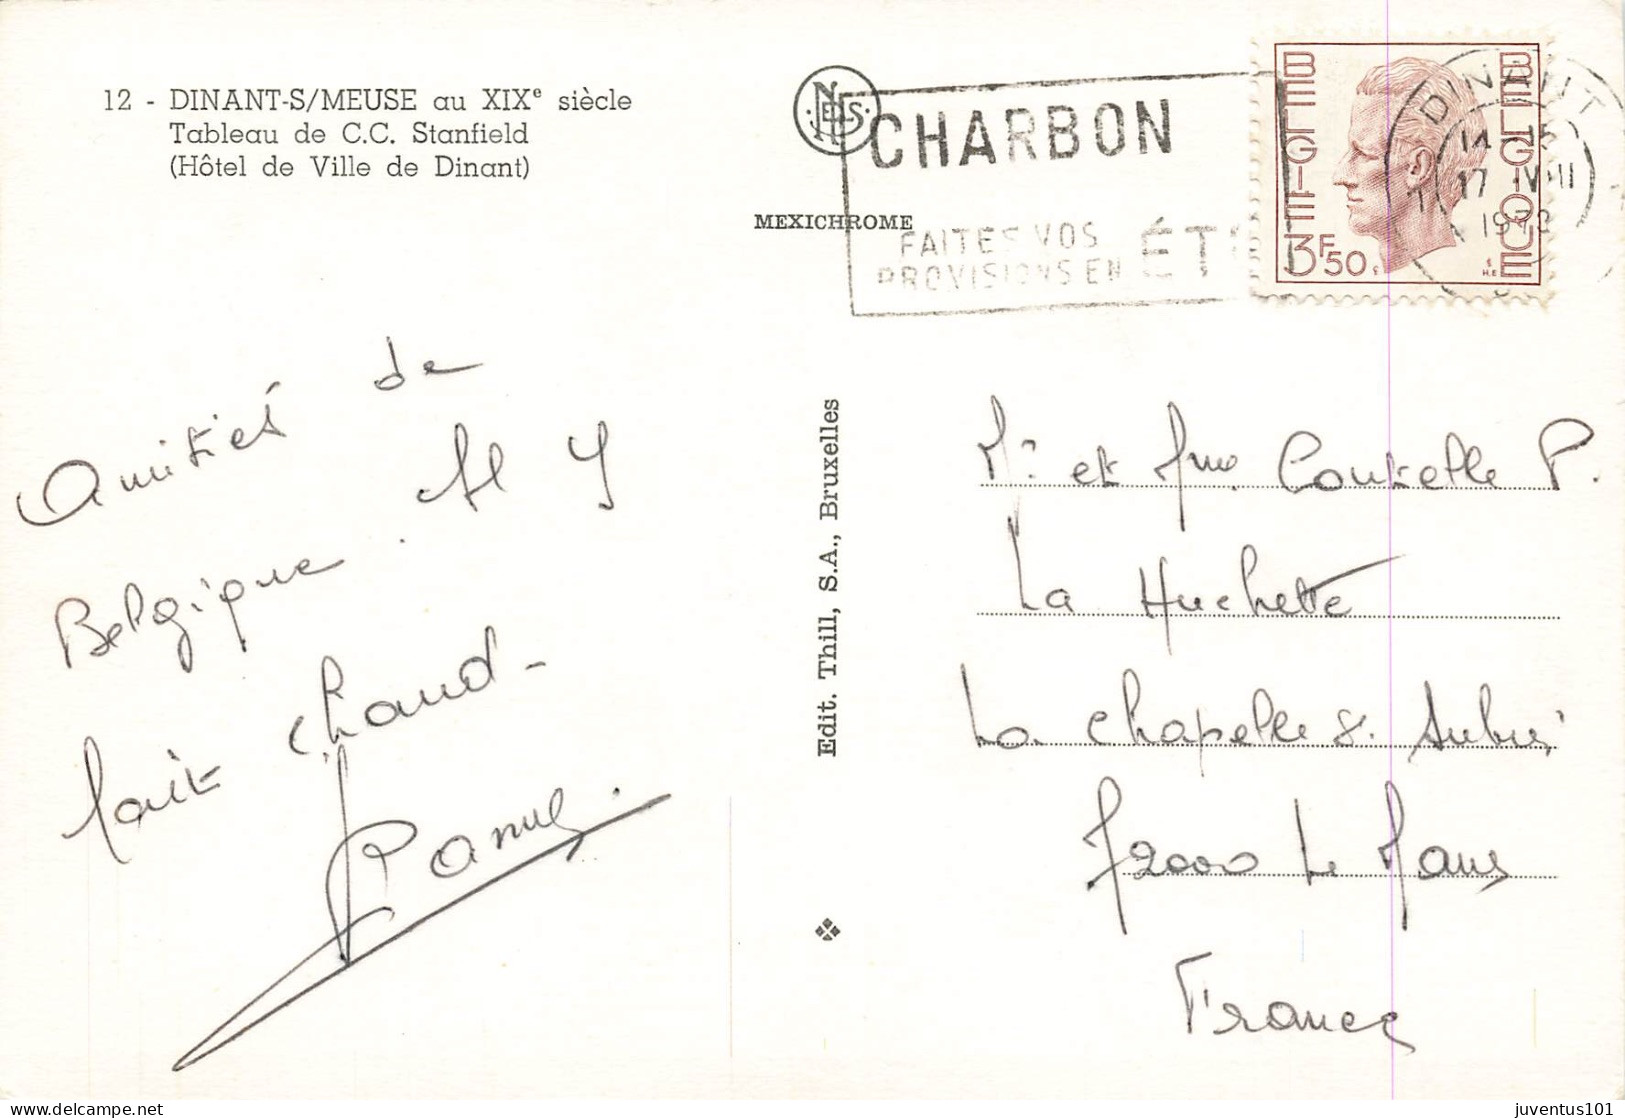 12 - DINANT-S/MEUSE au XIXe siècle
Tableau de C.C. Stanfield
(Hôtel de Ville de Dinant)
NELS
MEXICHROME
CHARBON
FAITES VOS
PROVISIONS EN ÉTÉ
BELGIË
BELGIQUE
3F50
DINANT
14-15
17 VIII
197
Amitiés de
Belgique. Il y
fait chaud-
Edit. Thill, S.A., Bruxelles
Mr et Mme Coutelle P.
La Huchette
La Chapelle St. Aubin
72000 Le Mans
France
juventus101